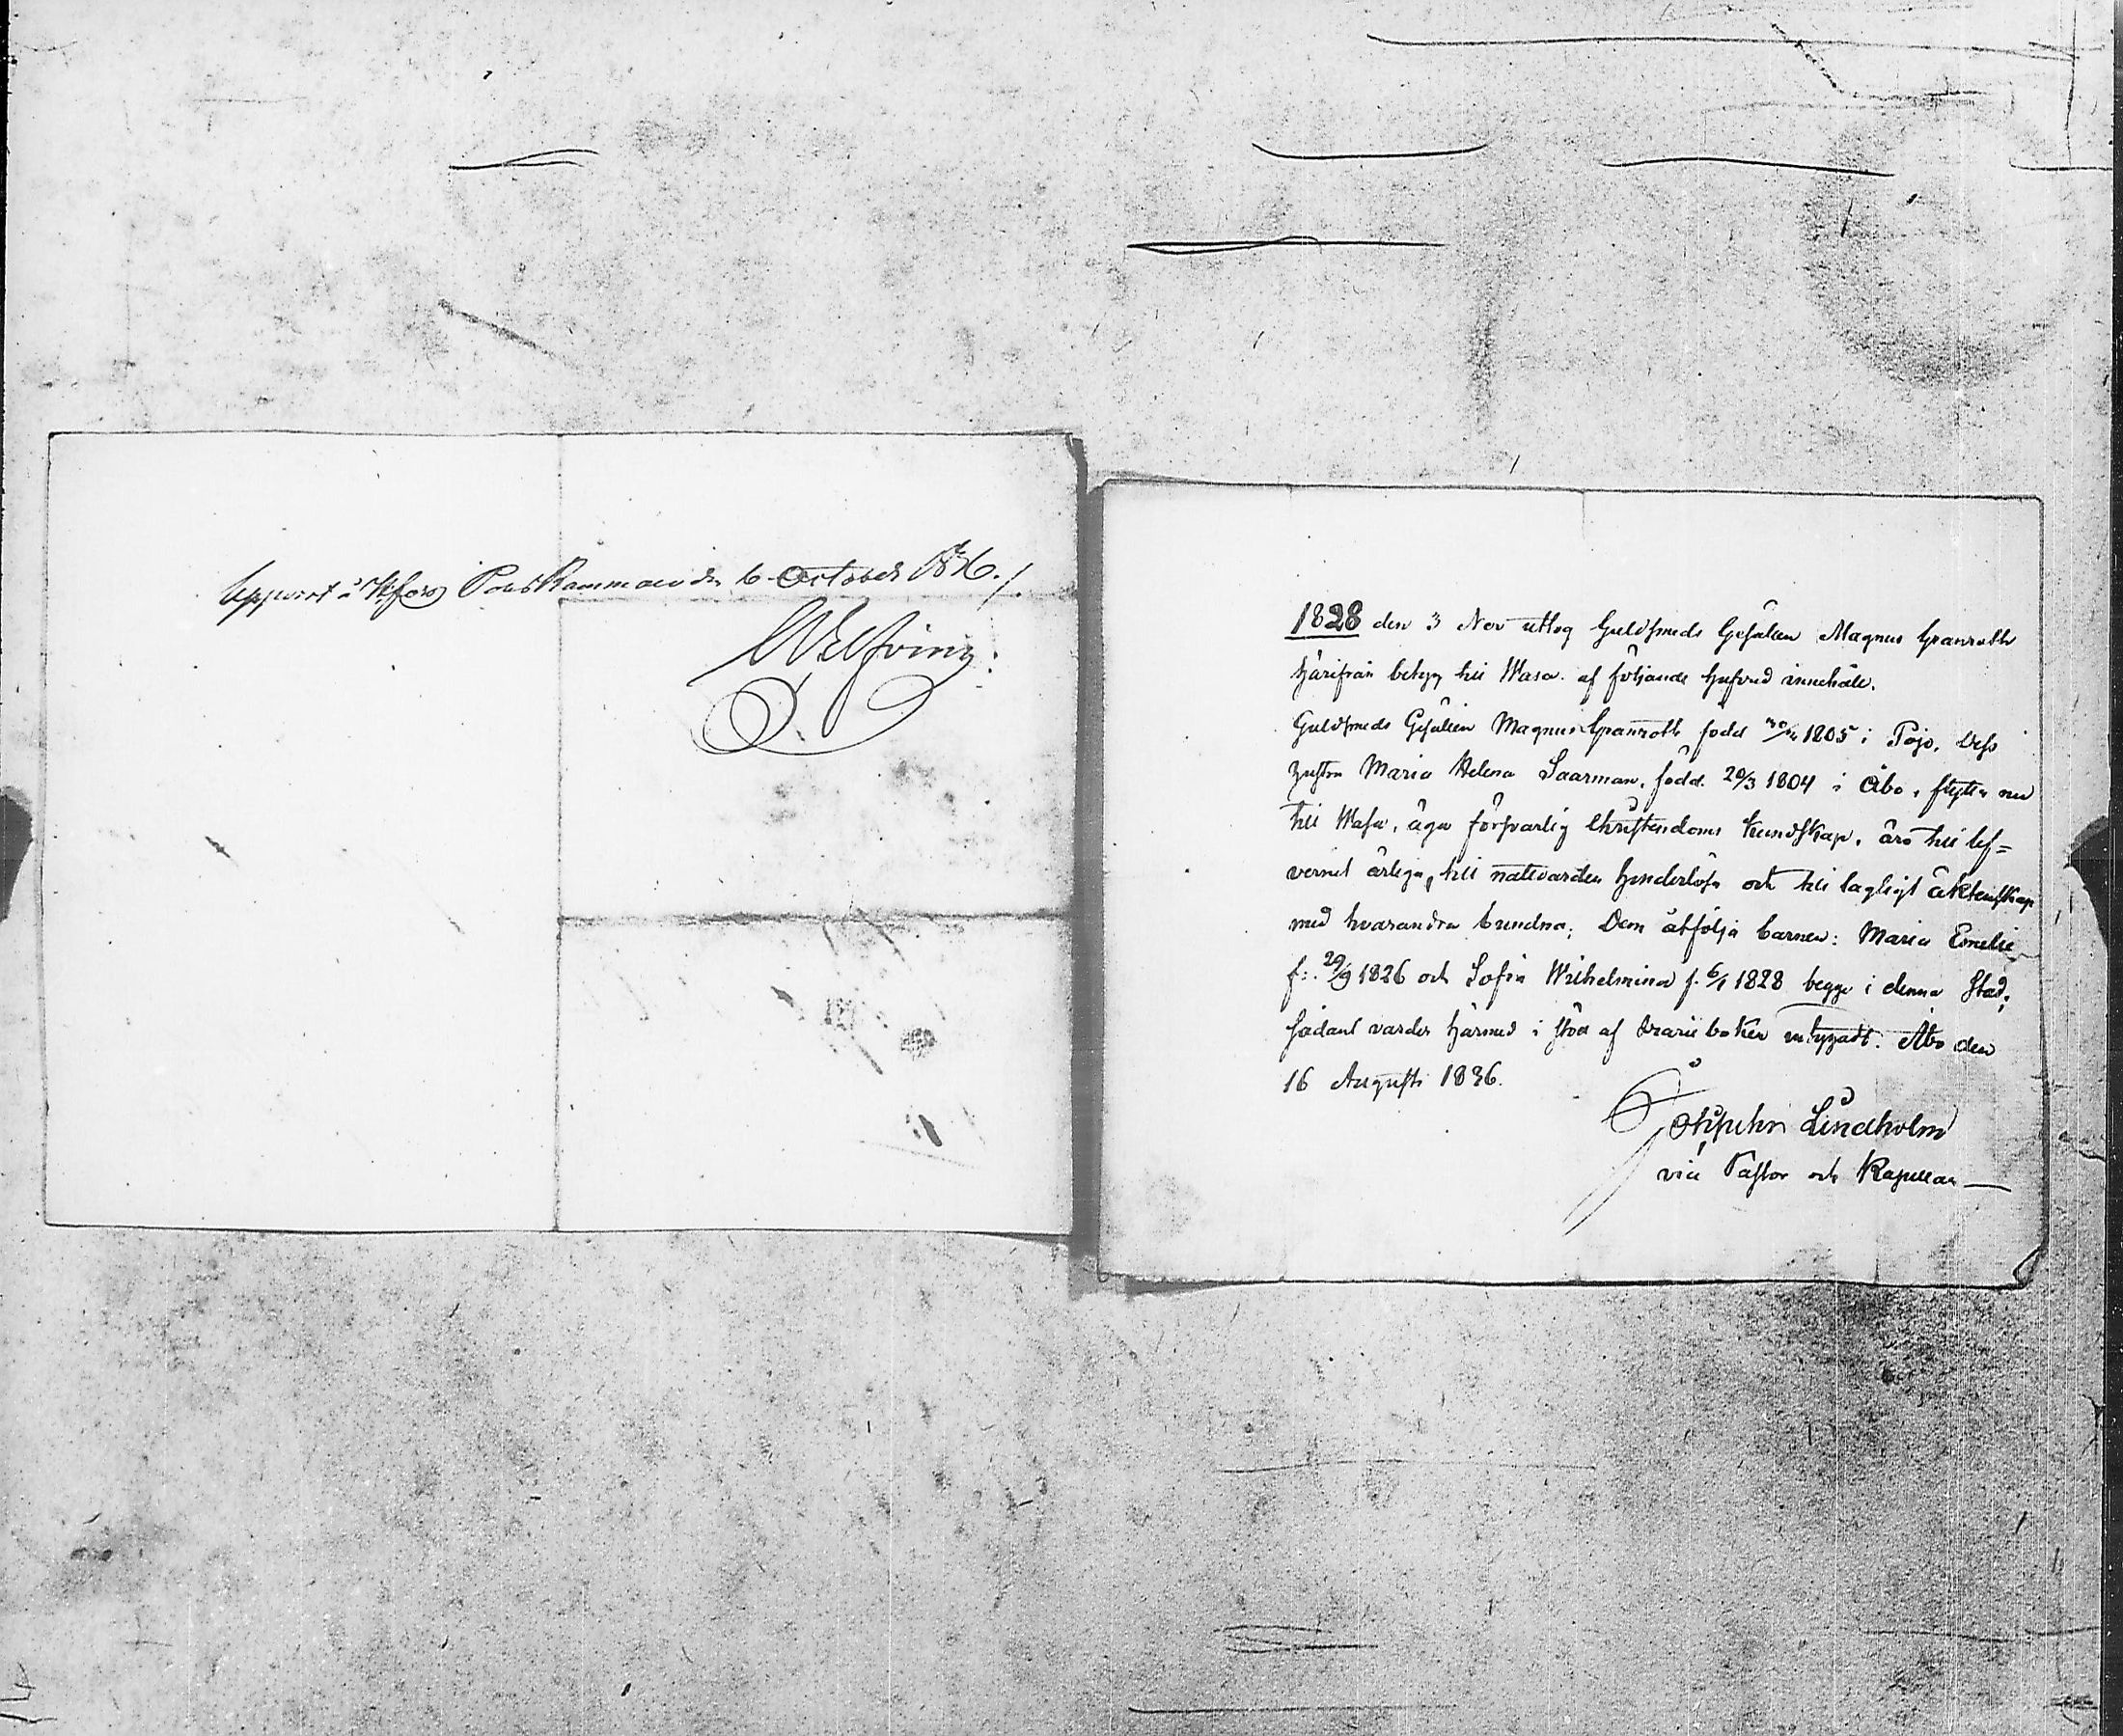 Uppvist å Hfors Pass Kammare den 6 October 1836.
1828 den 3 Nov uttog Guldsmeds Gesällen Magnus Granroth
härifrån betyg till Wasa af följande hufvud innehåll.
Guldsmeds Gesällen Magnus Granroth född 1805 i Pojo, dess
hustru Maria Helena Saarman, född. 20/3 1804 i Åbo, flytta nu
till Wasa, äga försvarlig Christendoms kundskap, äro till lef=
vernet ärliga, till nattvarden hinderlösa och till lagligt äktenskap
med hvarandra bundna; Dem åtfölja barnen: Maria Emelie
f:. 29/9 1826 och Sofia Wilhelmina f. 6/1 1828 begge i denna Stad;
sådant varder härmed i stöd af Kyrkoboken intygadt. Åbo den
16 Augusti 1836.
Lindholm
vice Pastor och Kapellan